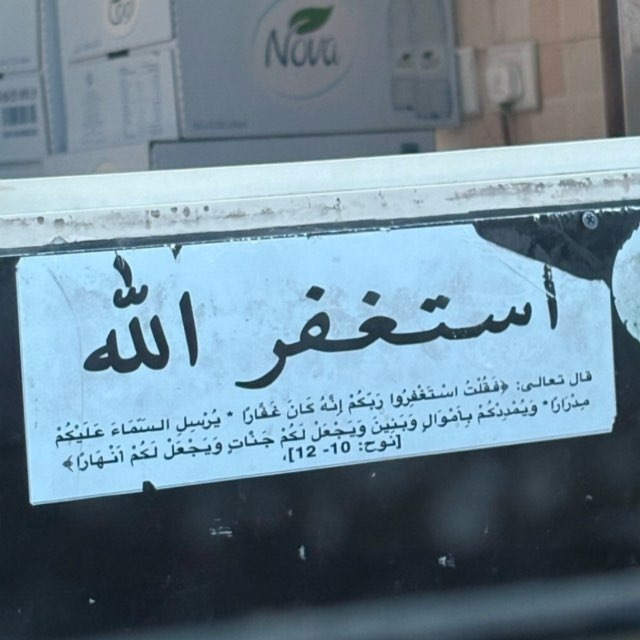 Nova
استغفر الله
قال تعالى: ﴿فَقُلْتُ اسْتَغْفِرُوا رَبَّكُمْ إِنَّهُ كَانَ غَفَّارًا * يُرْسِلِ السَّمَاءَ عَلَيْكُمْ
مِدْرَارًا * وَيُمْدِدْكُمْ بِأَمْوَالٍ وَبَنِينَ وَيَجْعَلْ لَكُمْ جَنَّاتٍ وَيَجْعَلْ لَكُمْ أَنْهَارًا﴾
[نوح: 10- 12].